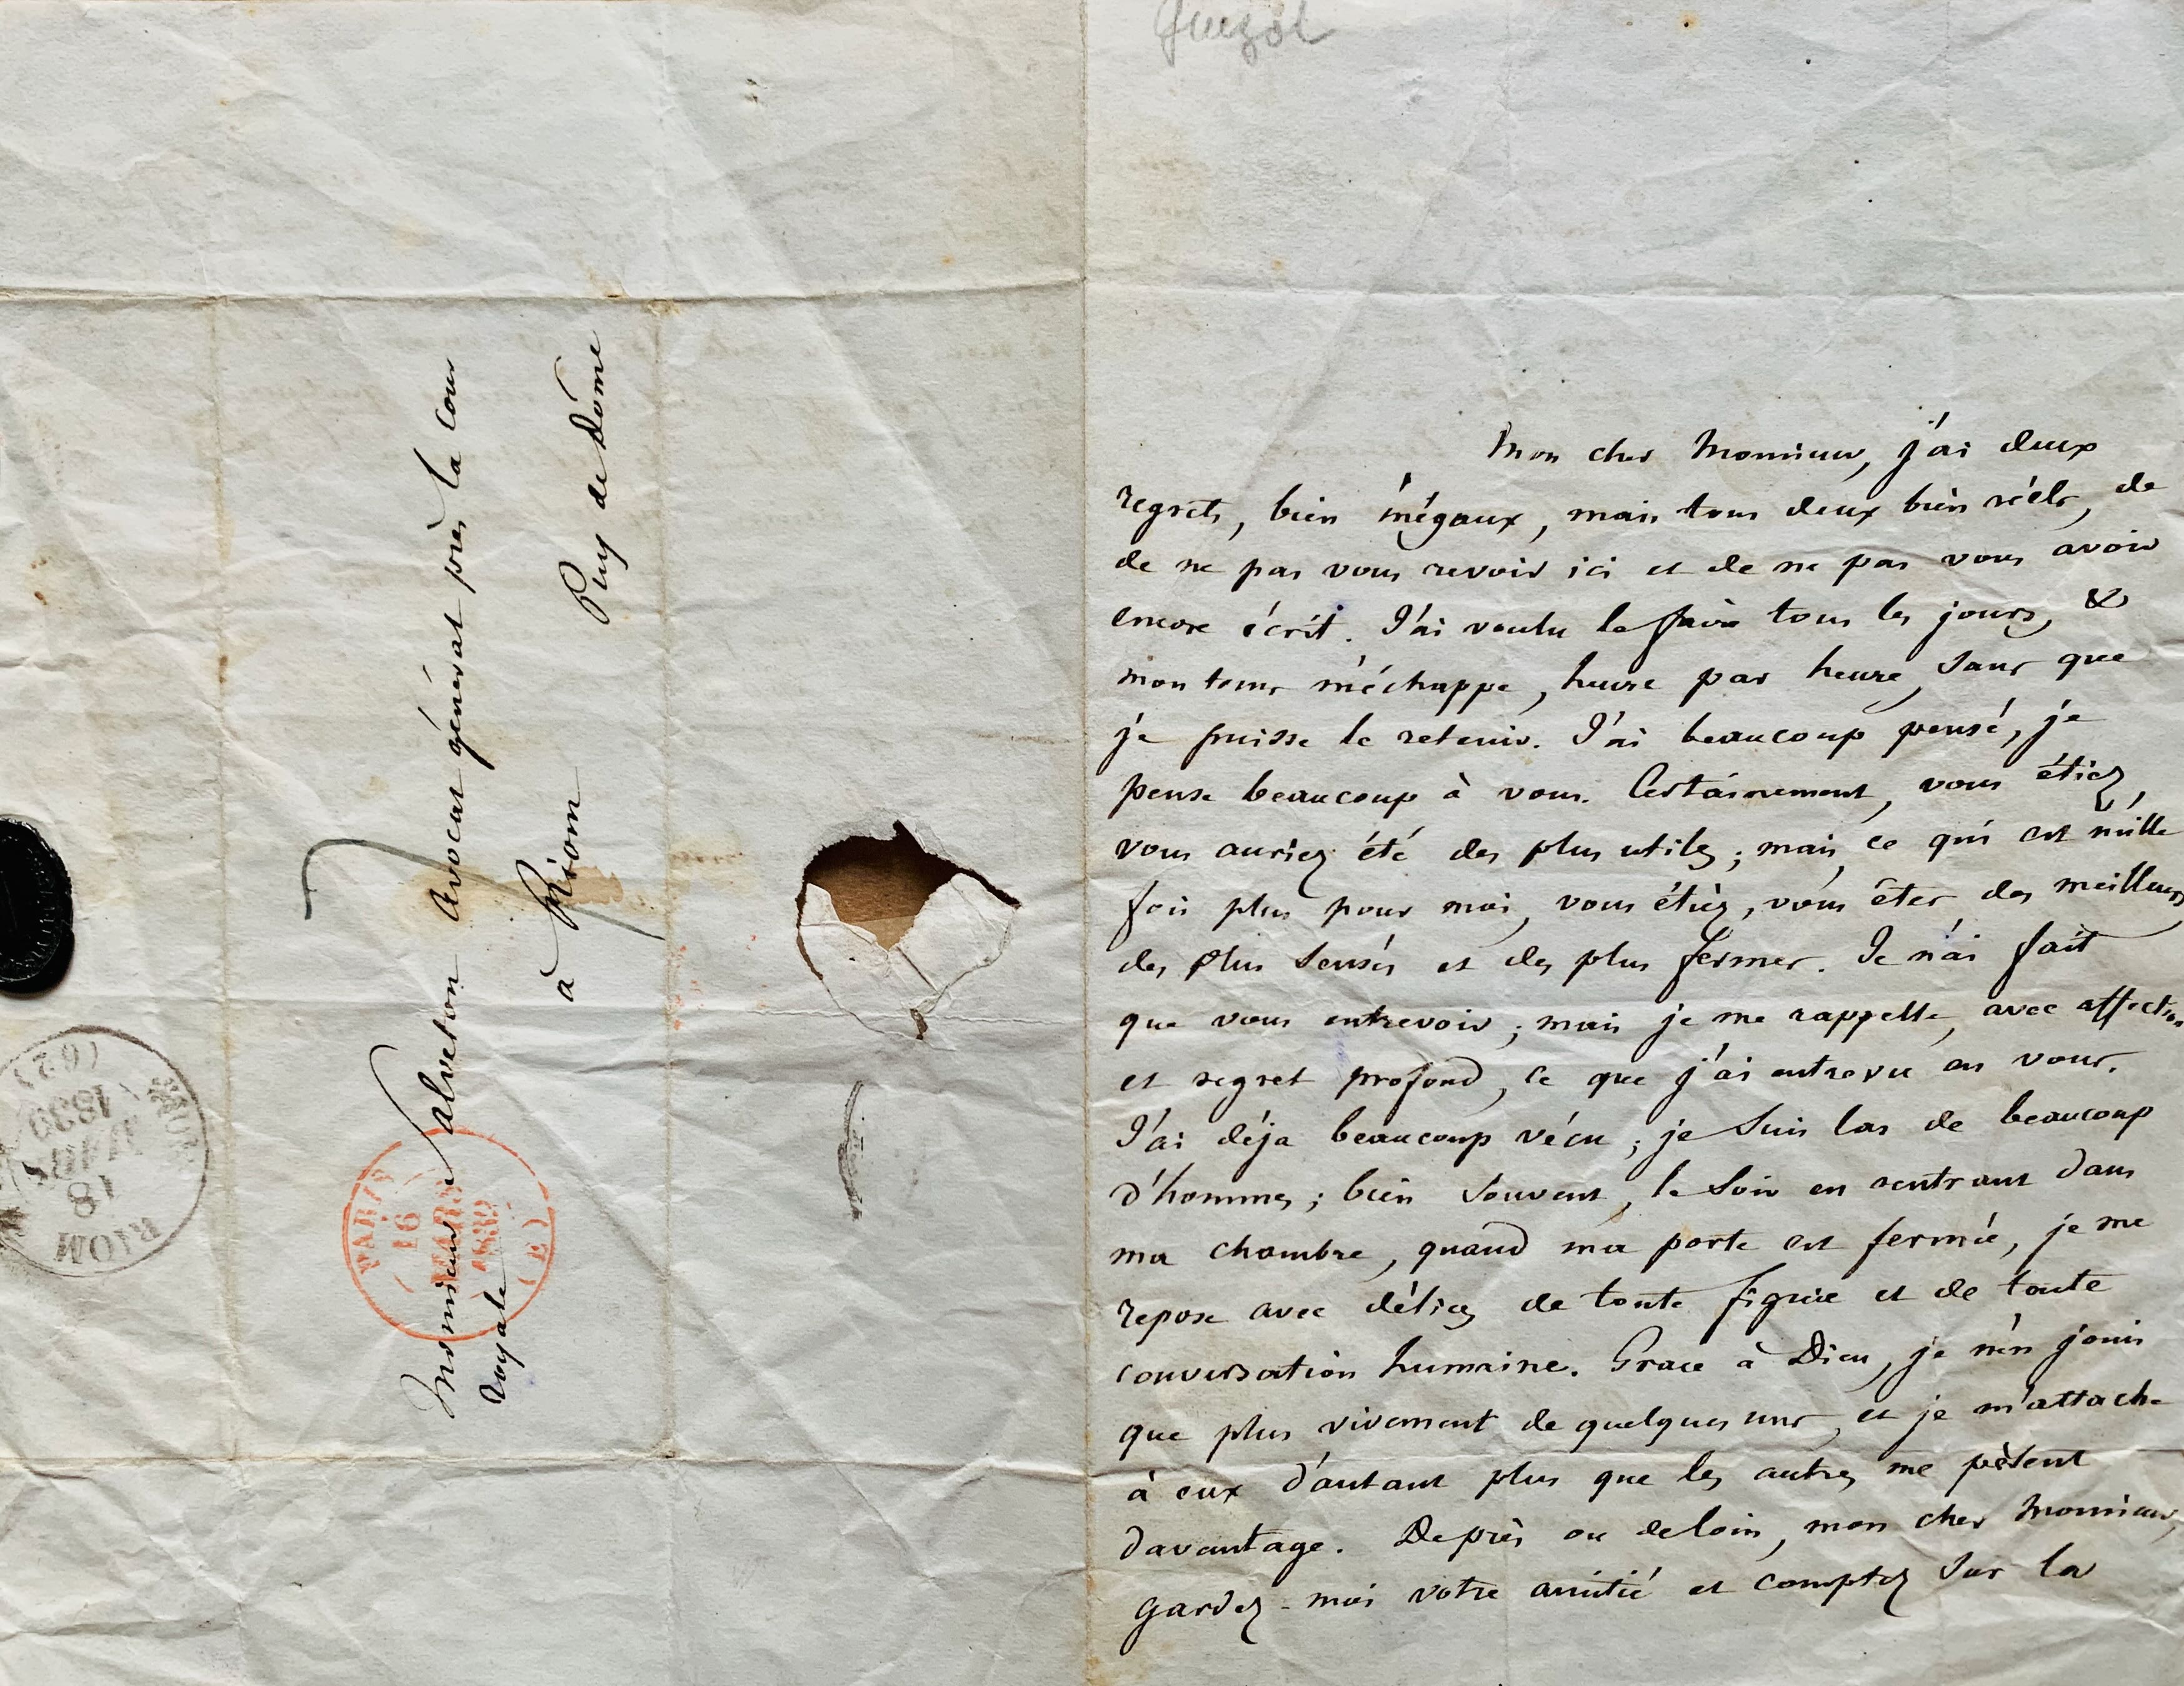 Guizot
Monsieur Salveton Avocat général près la cour
royale
à Riom
Puy de Dôme
PARIS
16
MARS
1839
(E)
RIOM
18
MARS
1839
(62)
Mon cher Monsieur, j'ai deux
regrets, bien inégaux, mais tous deux bien réels, de
de ne pas vous revoir ici et de ne pas vous avoir
encore écrit. J'ai voulu le faire tous les jours, &
mon tems m'échappe, heure par heure, sans que
je puisse le retenir. J'ai beaucoup pensé, je
pense beaucoup à vous. Certainement, vous étiez,
vous auriez été des plus utiles; mais, ce qui est mille
fois plus pour moi, vous étiez, vous êtes des meilleurs
des plus sensés et des plus fermes. Je n'ai fait
que vous entrevoir; mais je me rappelle, avec affection
et regret profond, ce que j'ai entrevu en vous.
J'ai déja beaucoup vécu; je suis las de beaucoup
d'hommes; bien souvent, le soir en rentrant dans
ma chambre, quand ma porte est fermée, je me
repose avec délices de toute figure et de toute
conversation humaine. Grace à Dieu, je n'en jouis
que plus vivement de quelques uns, et je m'attache
à eux d'autant plus que les autres me pèsent
davantage. De près ou de loin, mon cher Monsieur,
gardez-moi votre amitié et comptez sur la